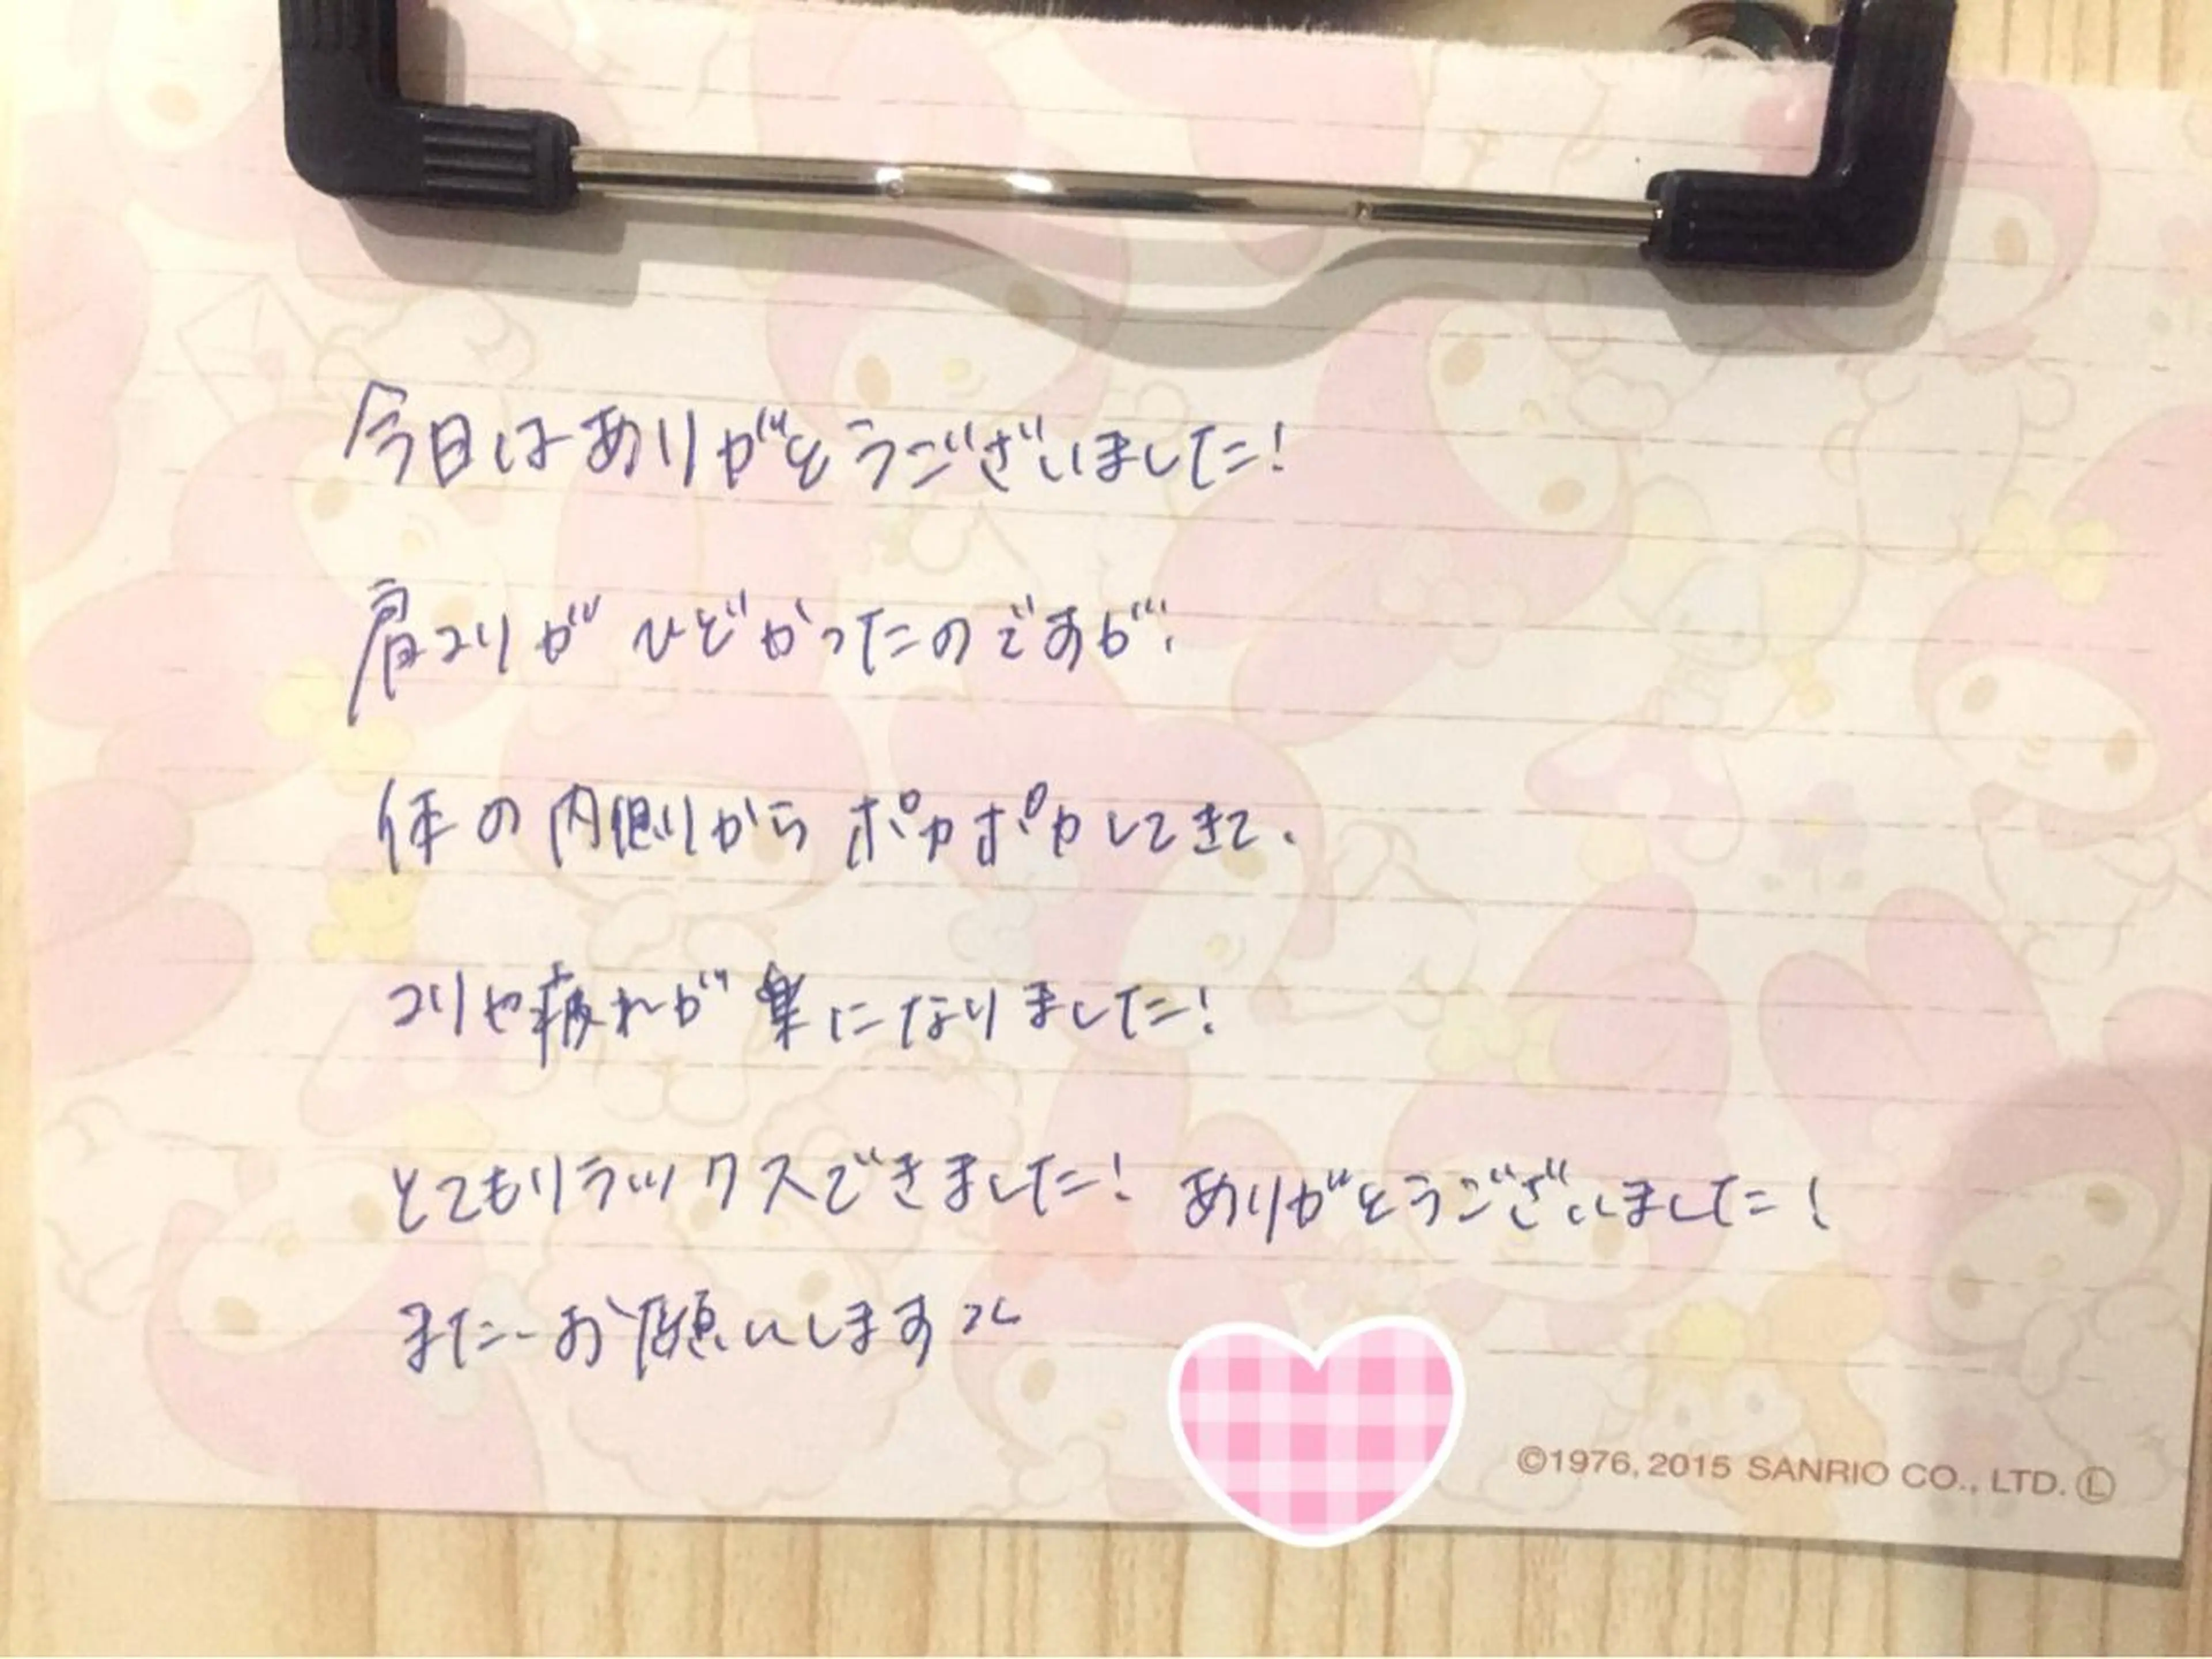 今日はありがとうございました!
肩コリがひどかったのですが、
体の内側からポカポカしてきて、
コリや疲れが楽になりました!
とてもリラックスできました! ありがとうございました!
またお願いします
©1976, 2015 SANRIO CO., LTD. Ⓛ